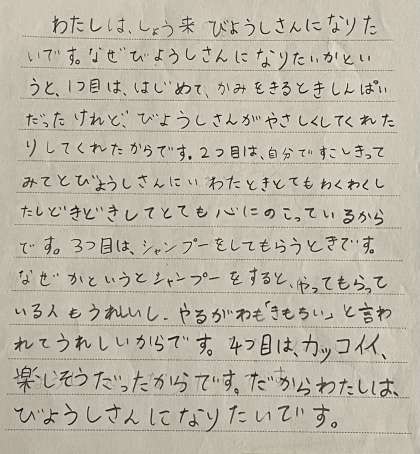 わたしは、しょう来 びようしさんになりた
いです。なぜびようしさんになりたいかとい
うと、1つ目は、はじめて、かみをきるときしんぱい
だったけれど、びようしさんがやさしくしてくれた
りしてくれたからです。2つ目は、自分ですこしきって
みてとびようしさんにいわたときとてもわくわくし
たしどきどきしてとても心にのこっているから
です。3つ目は、シャンプーをしてもらうときです。
なぜかというとシャンプーをすると、やってもらって
いる人もうれしいし、やるがわも「きもちい」と言わ
れてうれしいからです。4つ目は、カッコイイ、
楽しそうだったからです。だからわたしは、
びようしさんになりたいです。